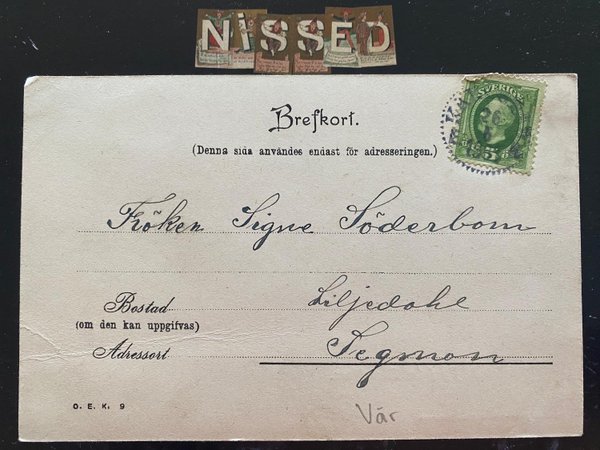 NiSSED
Brefkort.
(Denna sida användes endast för adresseringen.)
SVERIGE
5
Fröken Signe Söderbom
Bostad
(om den kan uppgifvas)
Liljedahl
Adressort
Segmon
O. E. K. 9
Vär